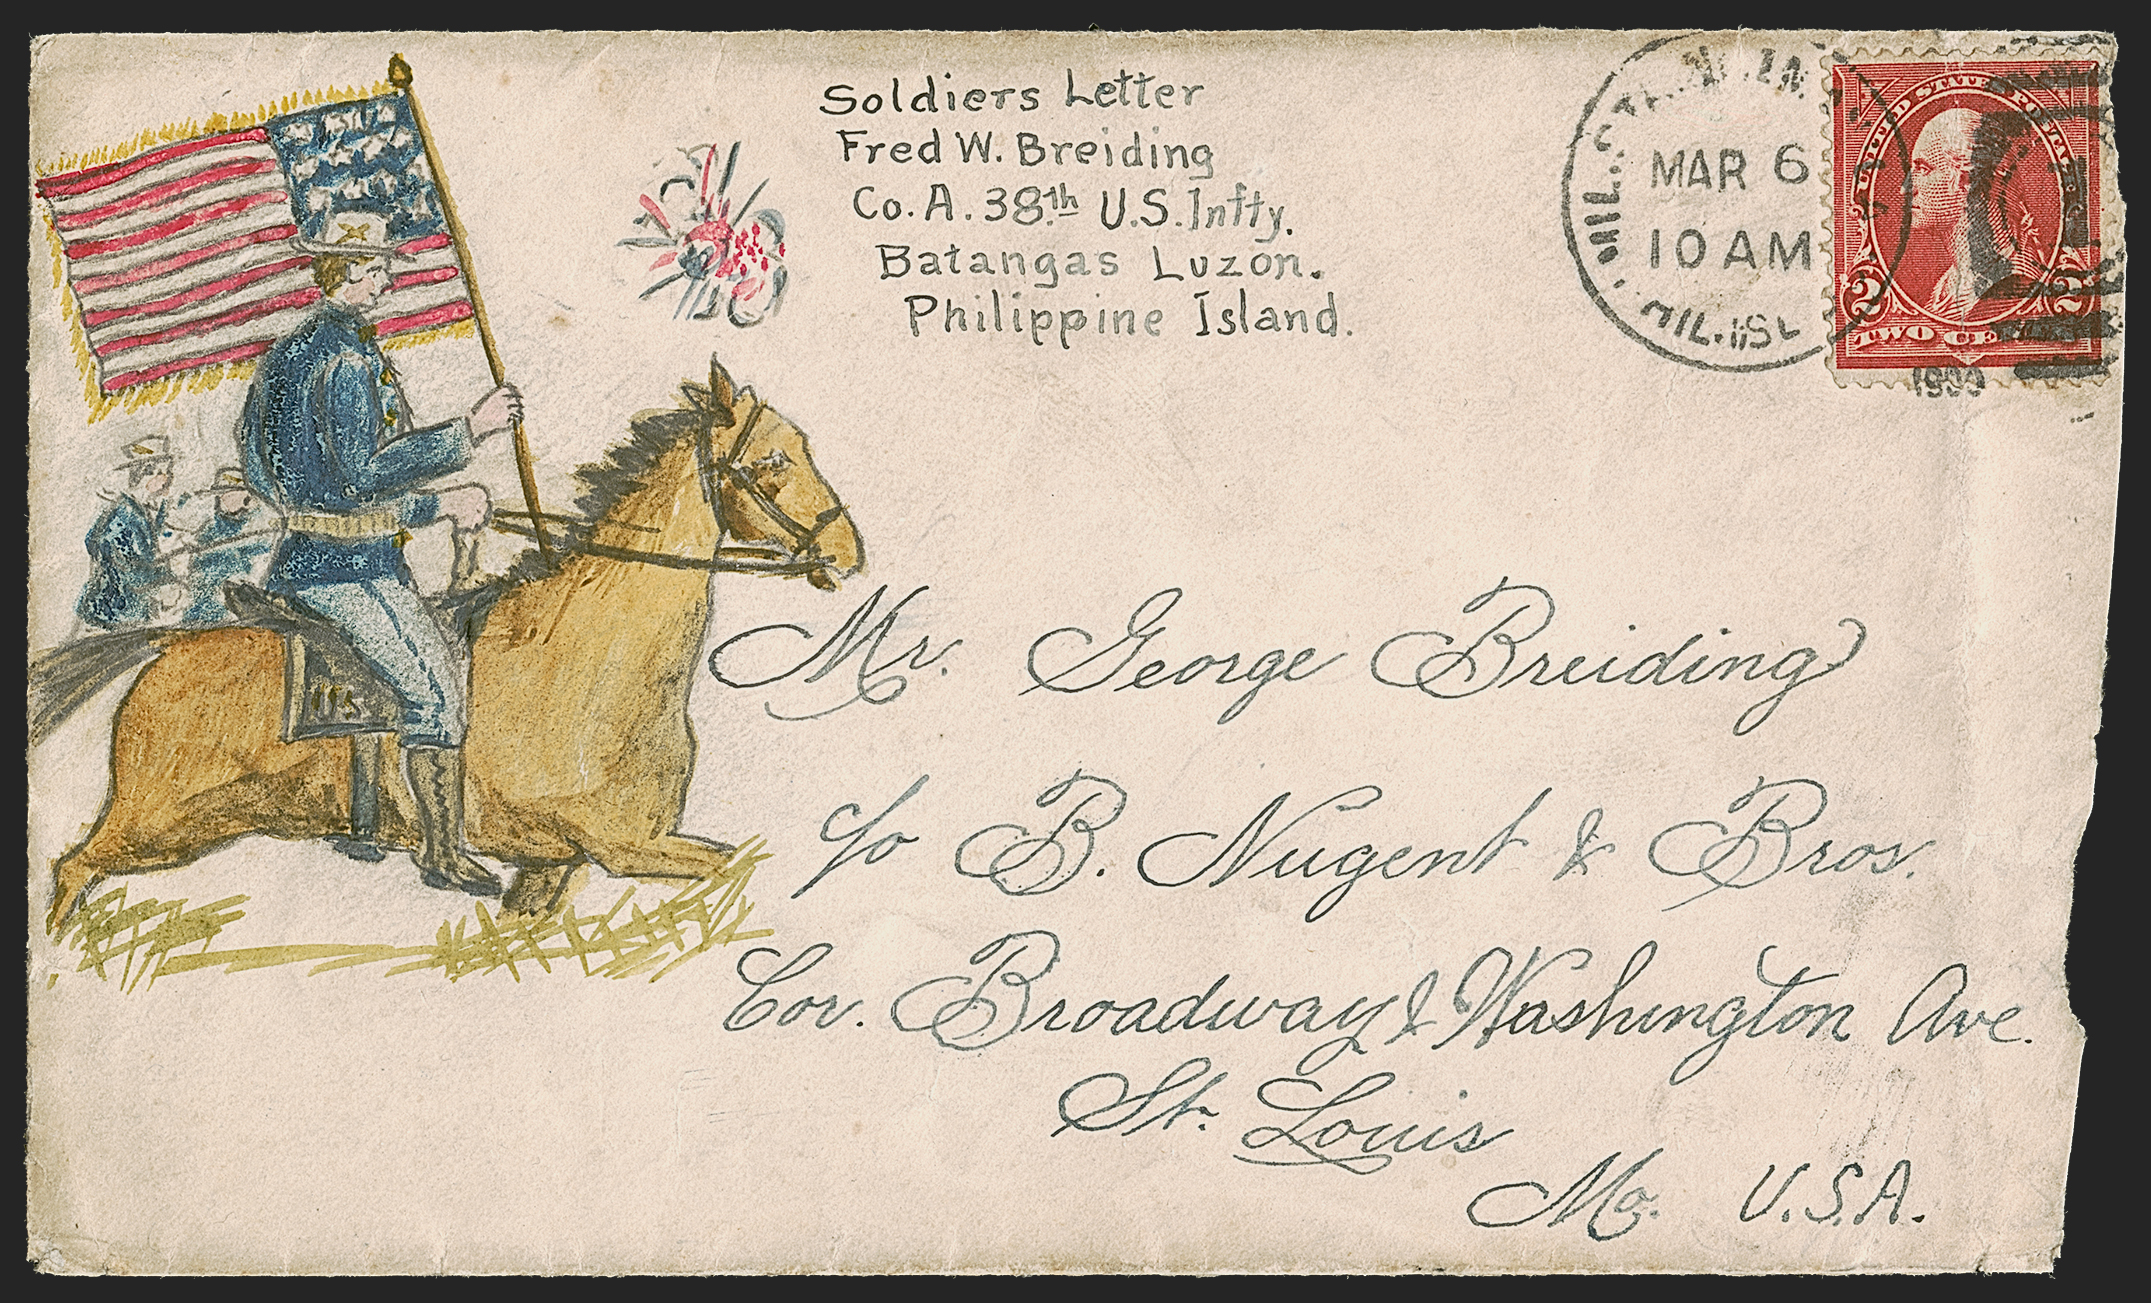 Soldiers Letter
Fred W. Breiding
Co. A. 38th U.S. Infty.
Batangas Luzon.
Philippine Island.
MIL.
MAR 6
10 AM
1900
UNITED STATES POSTAGE
2 2
TWO
U.S.
Mr. George Breiding
c/o B. Nugent & Bros.
Cor. Broadway & Washington Ave.
St. Louis
Mo. U.S.A.